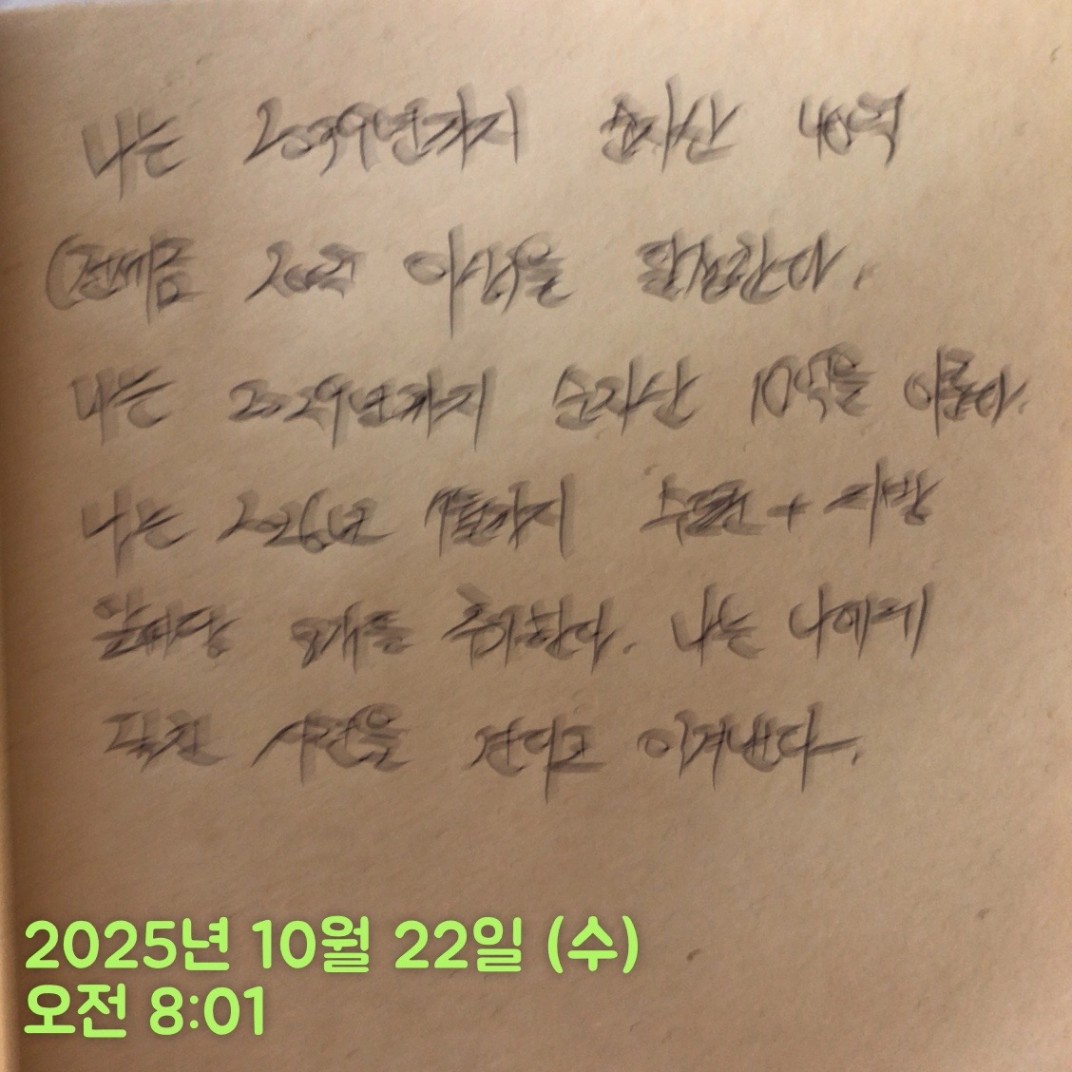 나는 2039년까지 순자산 40억
(전세금 20억 이상)을 달성한다.
나는 2029년까지 순자산 10억을 이룬다.
나는 2026년 까지 수도권 + 지방
앞마당 8개를 추가한다. 나는 나에게
닥친 시련을 견디고 이겨낸다.
2025년 10월 22일 (수)
오전 8:01